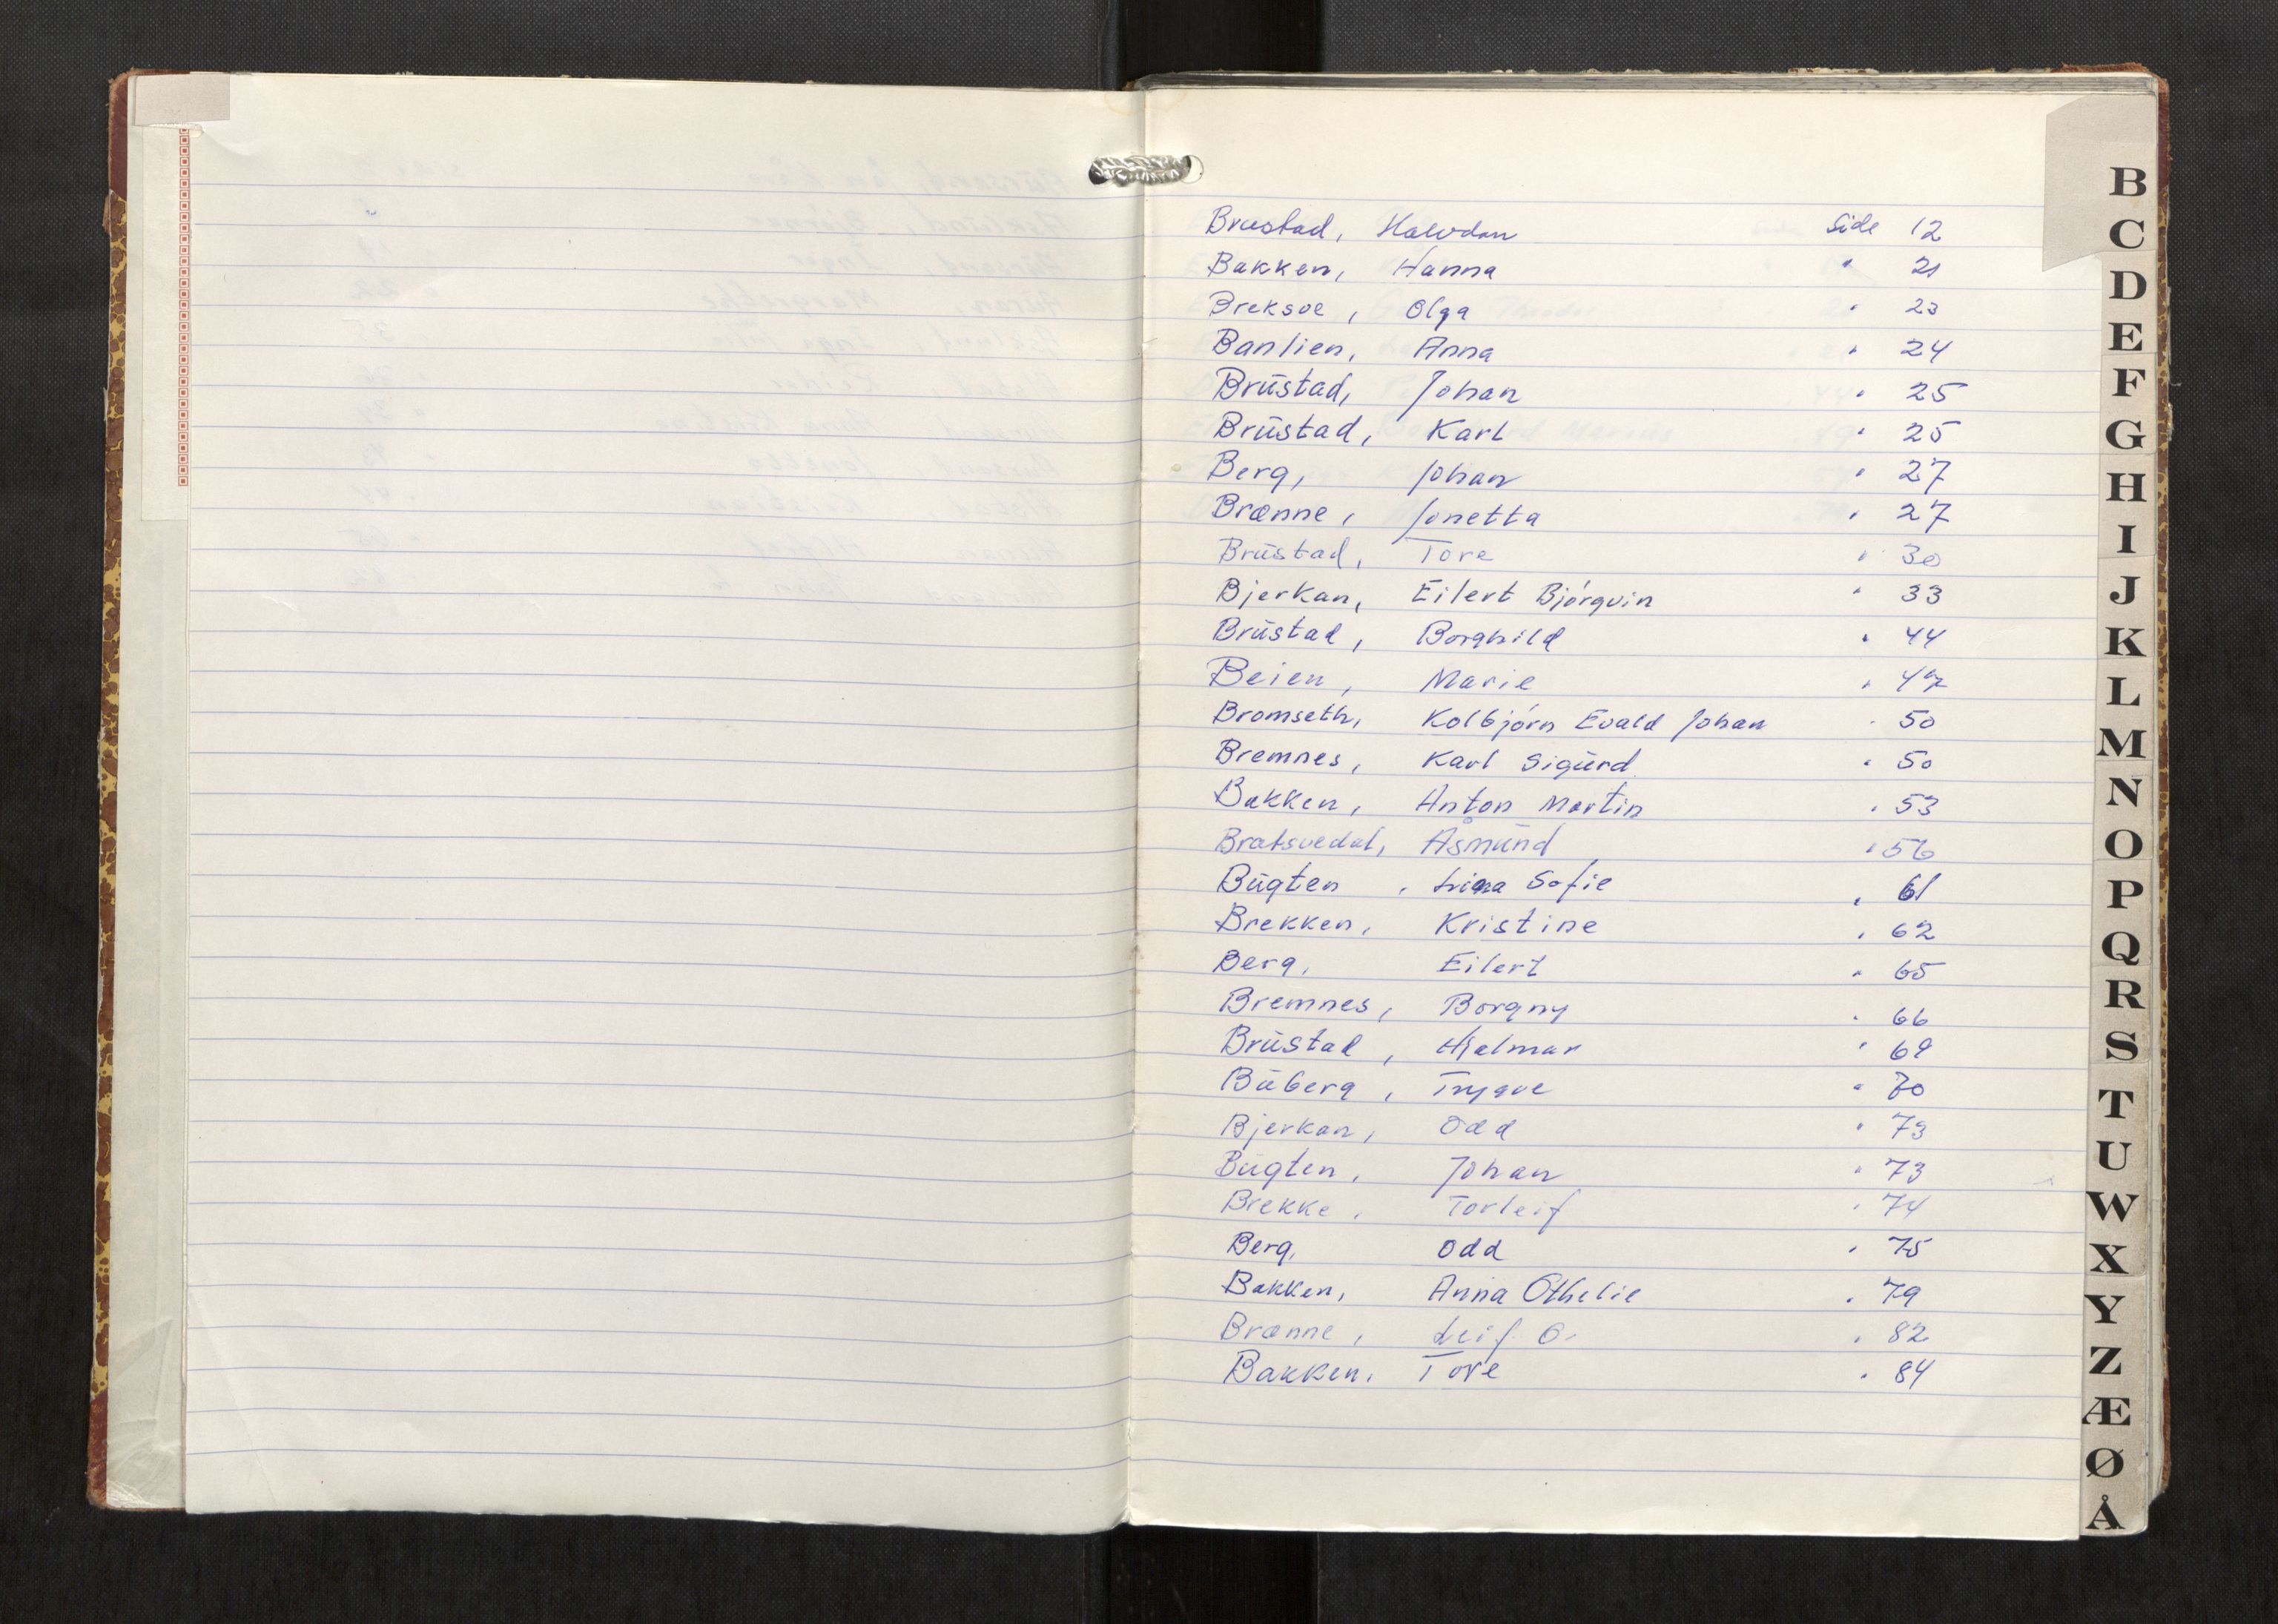 Brustad, Halvdan Side 12
Bakken, Hanna " 21
Breksoe, Olga " 23
Banlien, Anna " 24
Brūstad, Johan " 25
Brūstad, Karl " 25
Berg, Johan " 27
Brænne, Jonetta " 27
Brūstad, Tore " 30
Bjerkan, Eilert Bjórgvin " 33
Brūstad, Borghild " 44
Beien, Marie " 47
Bromseth, Kolbjórn Evald Johan " 50
Bremnes, Karl Sigūrd " 50
Bakken, Anton Martin " 53
Bratsvedal, Åsmūnd " 56
Būgten, Sofie " 61
Brekken, Kristine " 62
Berg, Eilert " 65
Bremnes, Borgny " 66
Brūstad, Hjalmar " 69
Būberg, Trygve " 70
Bjerkan, Odd " 73
Būgten, Johan " 73
Brekke, Torleif " 74
Berg, Odd " 75
Bakken, Anna Othelie " 79
Brænne, Leif O. " 82
Bakken, Tove " 84
B
C
D
E
F
G
H
I
J
K
L
M
N
O
P
Q
R
S
T
U
W
X
Y
Z
Æ
Ø
Å